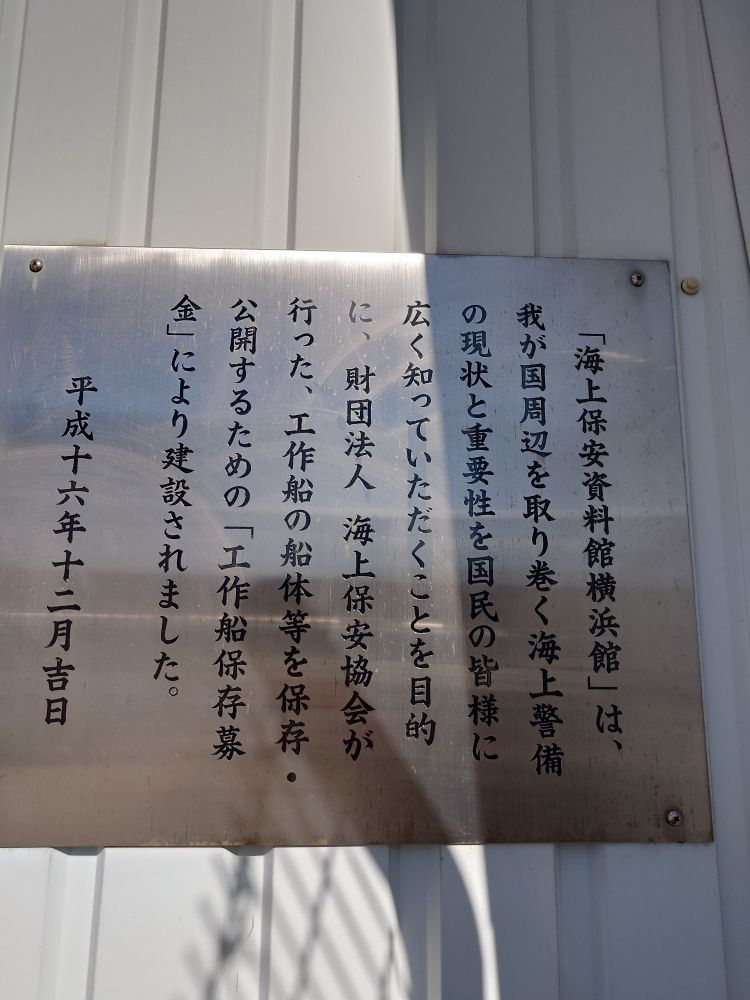 「海上保安資料館横浜館」は、
我が国周辺を取り巻く海上警備
の現状と重要性を国民の皆様に
広く知っていただくことを目的
に、財団法人　海上保安協会が
行った、工作船の船体等を保存・
公開するための「工作船保存募
金」により建設されました。
平成十六年十二月吉日